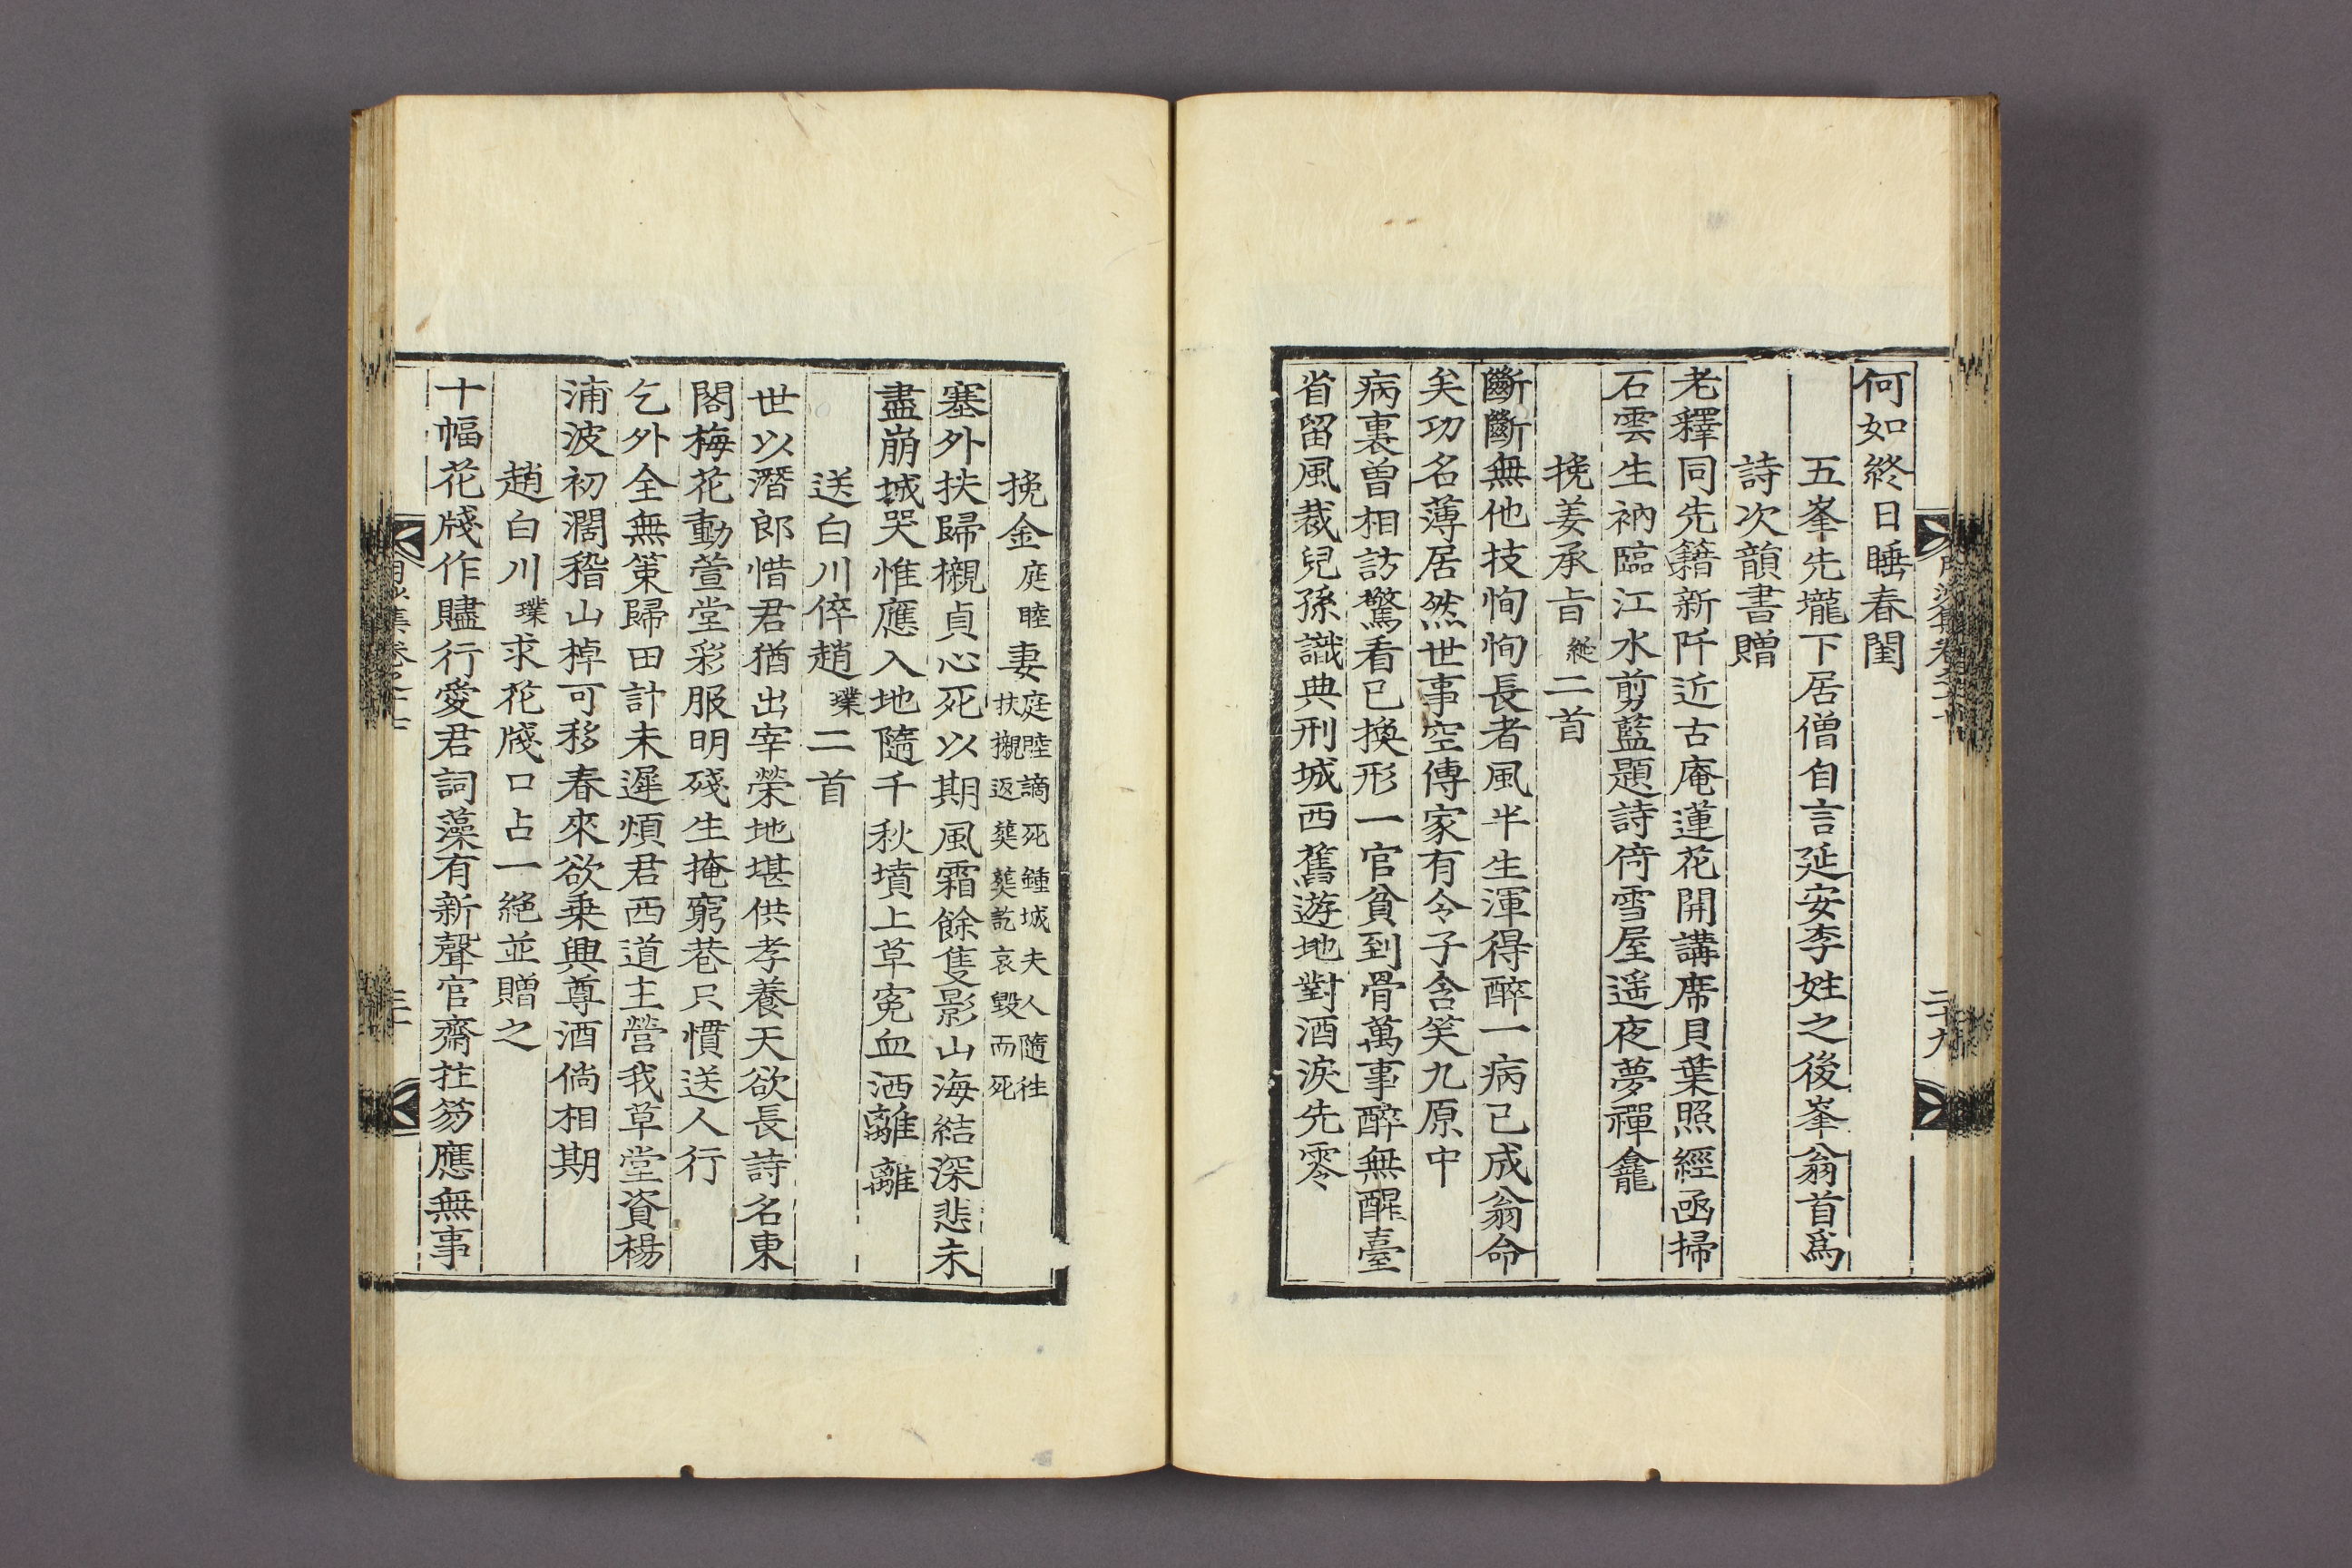 何如終日睡春閨
五峯先壠下居僧自言延安李姓之後峯翁首爲
詩次韻書贈
老釋同先籍新阡近古庵蓮花開講席貝葉照經函掃
石雲生衲臨江水剪藍題詩倚雪屋遥夜夢禪龕
挽姜承旨綖二首
斷斷無他技恂恂長者風半生渾得醉一病已成翁命
矣功名薄居然世事空傳家有令子含笑九原中
病裏曾相訪驚看已換形一官貧到骨萬事醉無醒臺
省留風裁兒孫識典刑城西舊遊地對酒淚先零
二十九
挽金庭睦妻庭睦謫死鍾城夫人隨往
扶櫬返葬葬訖哀毀而死
塞外扶歸櫬貞心死以期風霜餘隻影山海結深悲未
盡崩城哭惟應入地隨千秋墳上草寃血洒離離
送白川倅趙璞二首
世以潛郎惜君猶出宰榮地堪供孝養天欲長詩名東
閣梅花動萱堂彩服明殘生掩窮巷只慣送人行
乞外全無策歸田計未遲煩君西道主營我草堂資楊
浦波初濶稽山棹可移春來欲乗興尊酒倘相期
趙白川璞求花牋口占一絕並贈之
十幅花牋作贐行愛君詞藻有新聲官齋拄笏應無事